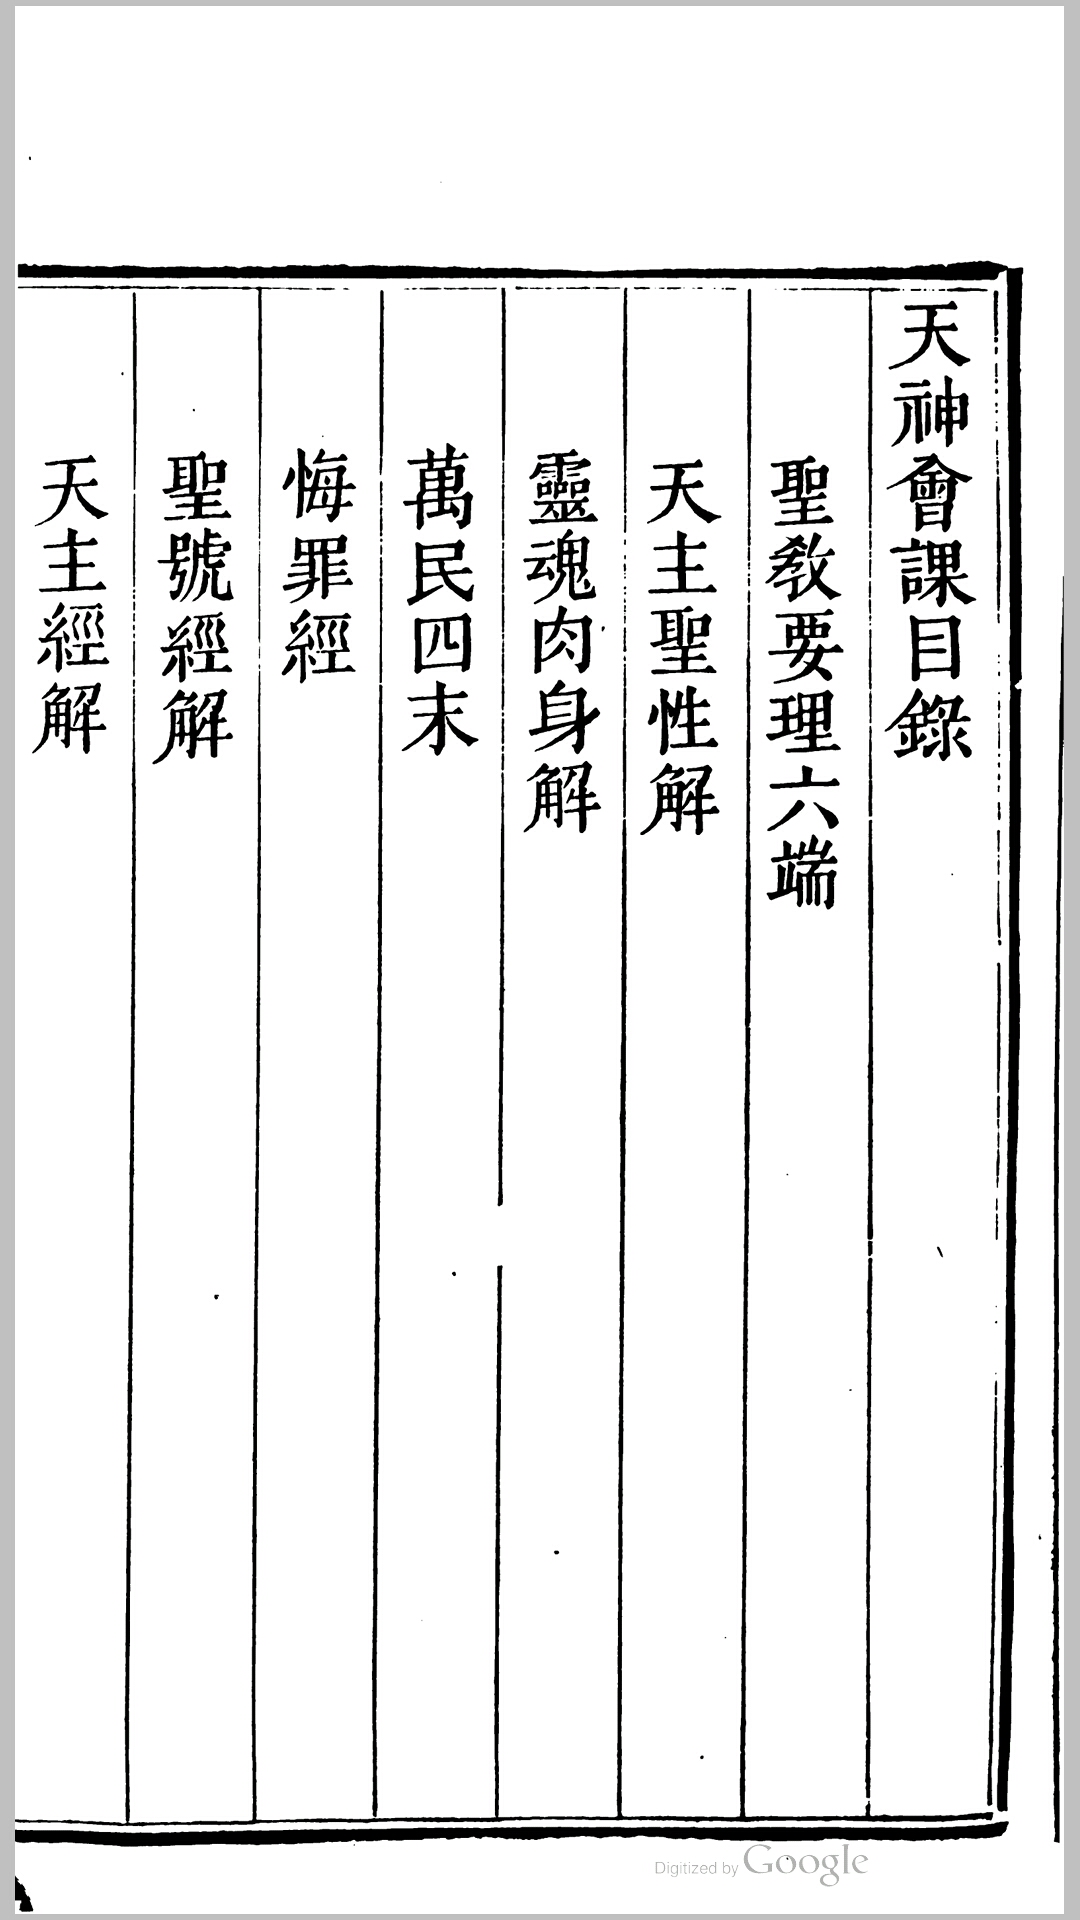 天神會課目錄
聖教要理六端
天主聖性解
靈魂肉身解
萬民四末
悔罪經
聖號經解
天主經解
Digitized by Google